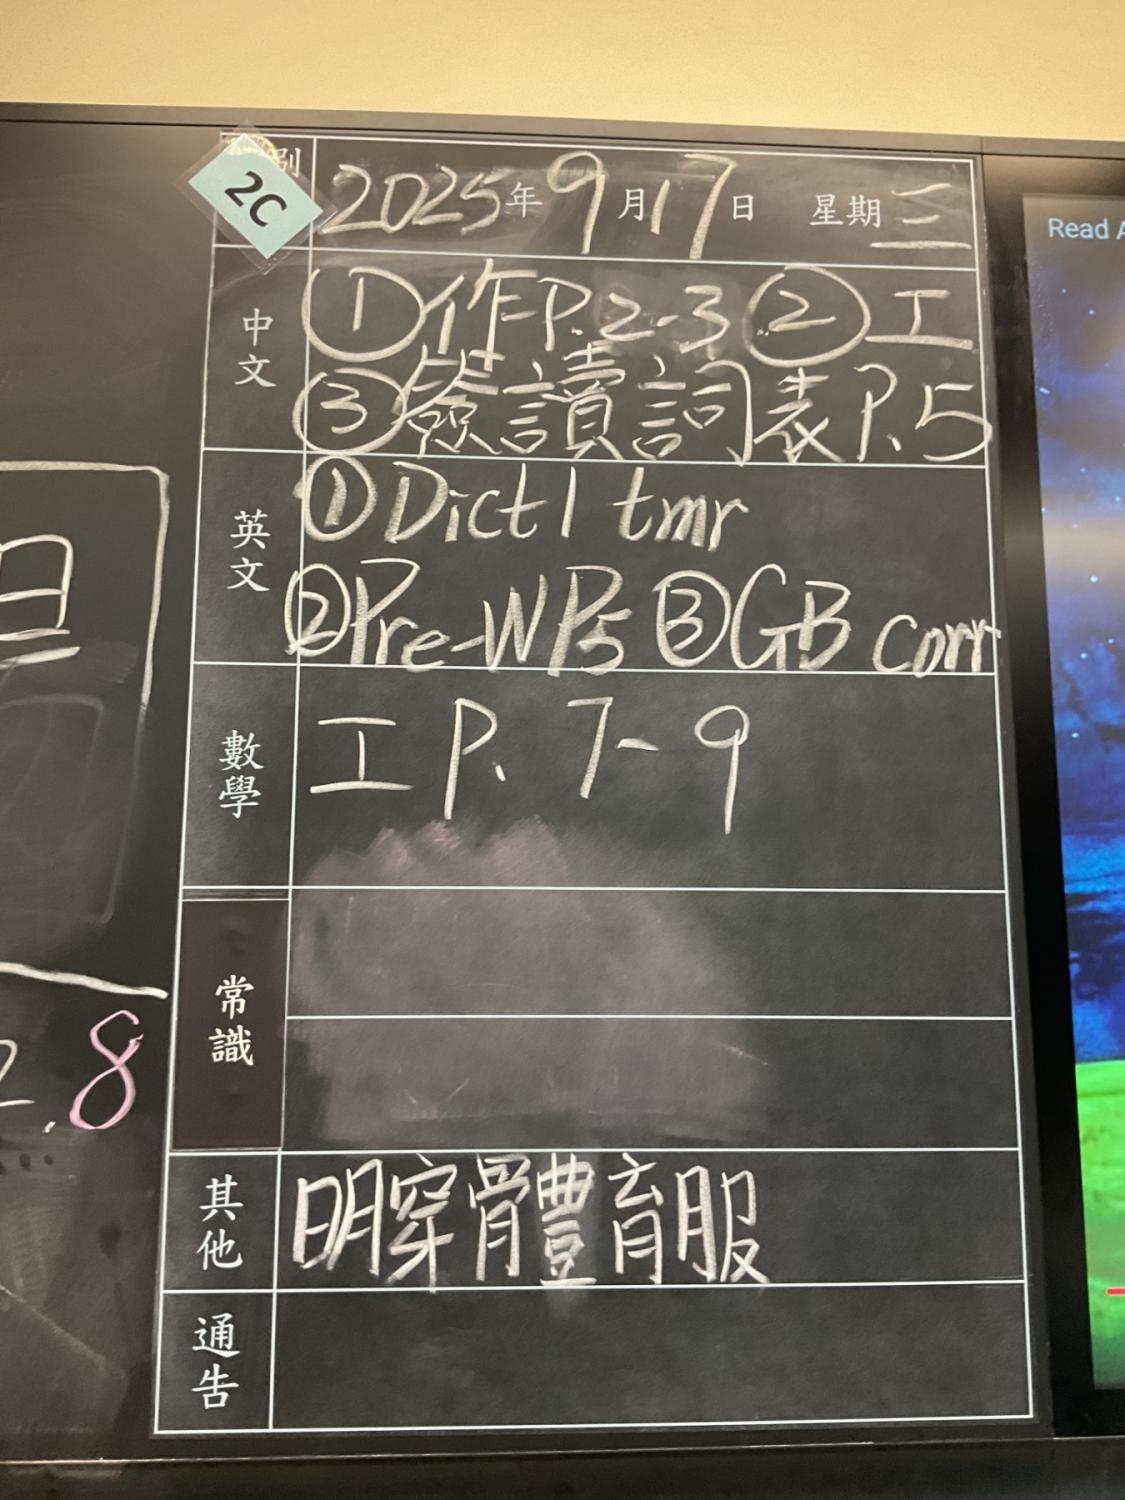 別
2C
2025年9月17日 星期三
中文
①作P.2-3 ②工
③簽讀詞表P.5
英文
①Dict 1 tmr
②Pre-W P5 ③GB corr
數學
工 P. 7-9
常識
其他
明穿體育服
通告
Read
日
8